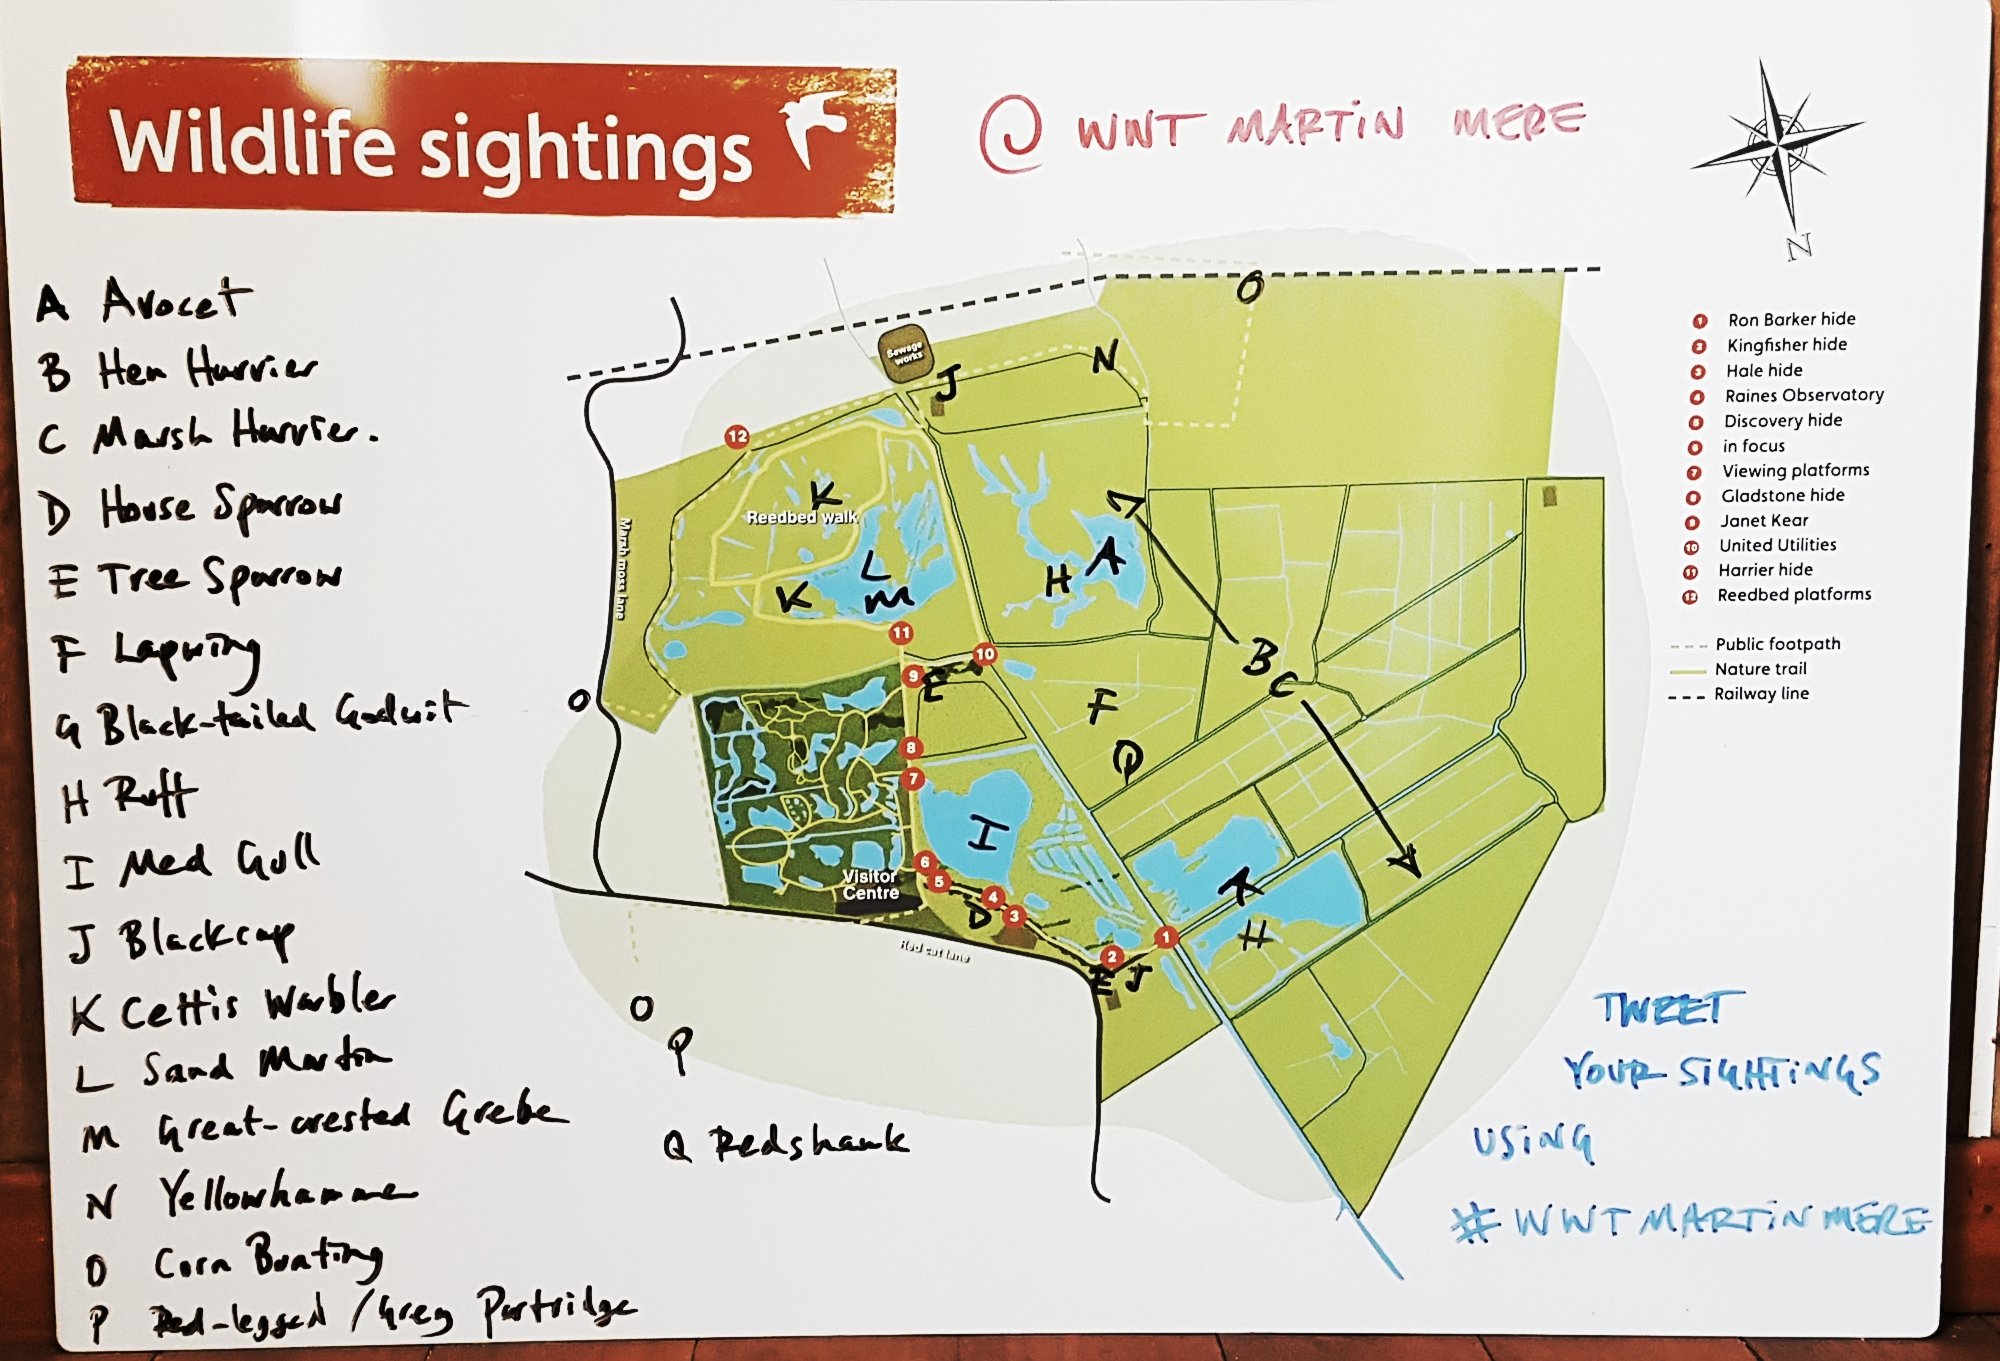 Wildlife sightings
@ WWT MARTiN MERE
N
A Avocet
B Hen Harrier
C Marsh Harrier.
D House Sparrow
E Tree Sparrow
F Lapwing
G Black-tailed Godwit
H Ruff
I Med Gull
J Blackcap
K Cettis Warbler
L Sand Martin
M Great-crested Grebe
N Yellowhammer
O Corn Bunting
P Red-legged / Grey Partridge
Q Redshank
1 Ron Barker hide
2 Kingfisher hide
3 Hale hide
4 Raines Observatory
5 Discovery hide
6 in focus
7 Viewing platforms
8 Gladstone hide
9 Janet Kear
10 United Utilities
11 Harrier hide
12 Reedbed platforms
Public footpath
Nature trail
Railway line
O
Sewage
works
J
N
12
K
Reedbed walk
Marsh moss lane
L
A
H
K
M
11
10
B
C
9
E
O
F
8
Q
7
I
6
Visitor
Centre
5
4
D
3
A
H
1
Red cat lane
2
E J
O
P
TWEET
YOUR SIGHTiNGS
USiNG
#WWTMARTiNMERE